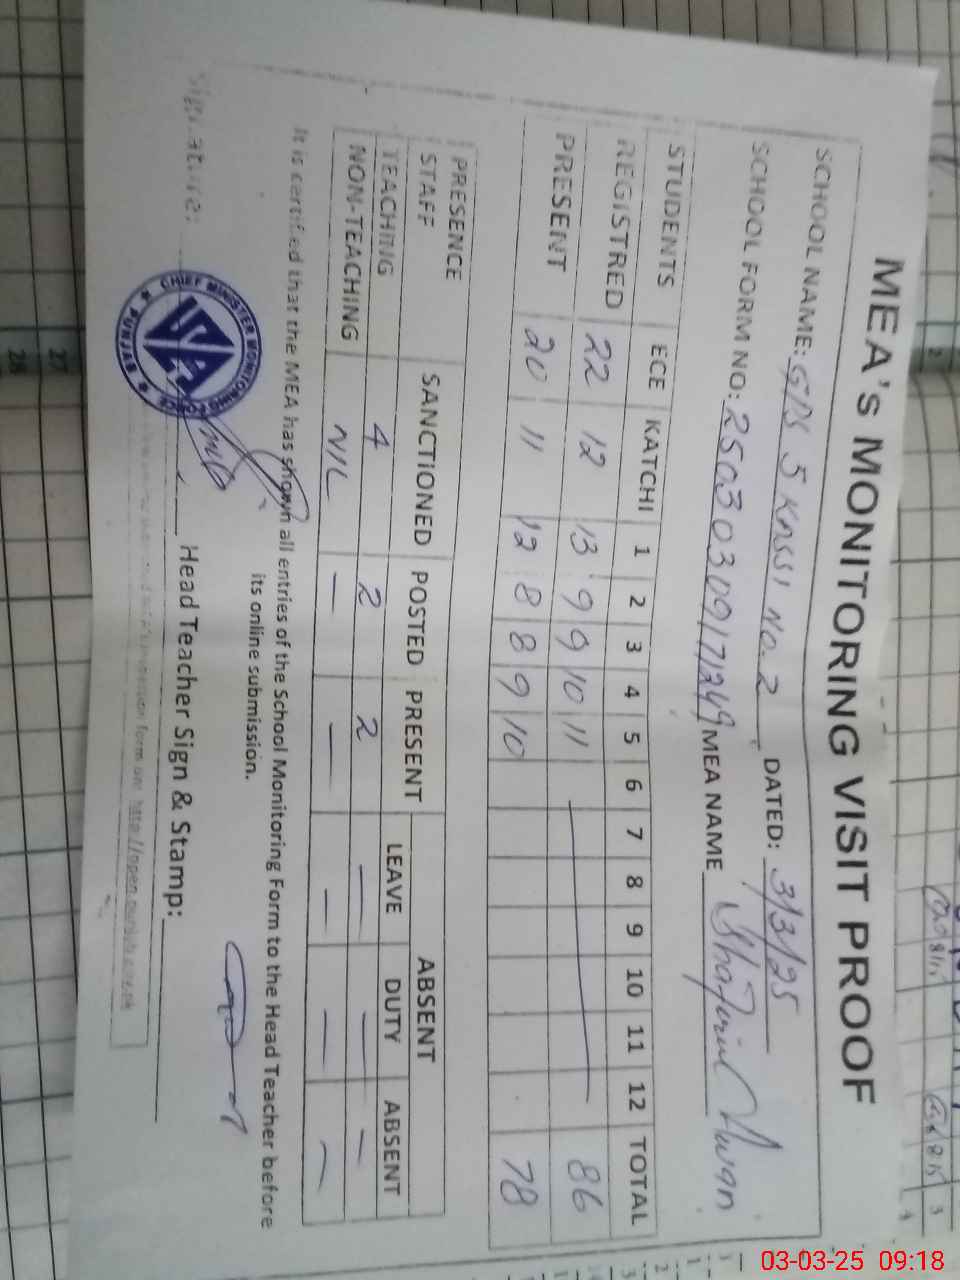 MEA's MONITORING VISIT PROOF
SCHOOL NAME: GPS 5 Kassi No. 2 DATED: 3/3/25
SCHOOL FORM NO: 2503030917/249 MEA NAME Awan
STUDENTS ECE KATCHI 1 2 3 4 5 6 7 8 9 10 11 12 TOTAL
REGISTRED 22 12 13 9 9 10 11 — 86
PRESENT 20 11 12 8 8 9 10 78
PRESENCE
STAFF SANCTIONED POSTED PRESENT ABSENT
LEAVE DUTY ABSENT
TEACHING 4 2 2 — — —
NON-TEACHING NIL — — — — —
It is certified that the MEA has shown all entries of the School Monitoring Form to the Head Teacher before
its online submission.
Signature: Head Teacher Sign & Stamp:
CHIEF MINISTER MONITORING FORCE
PUNJAB
form on: http://open.punjab.gov.pk
27
28
03-03-25 09:18